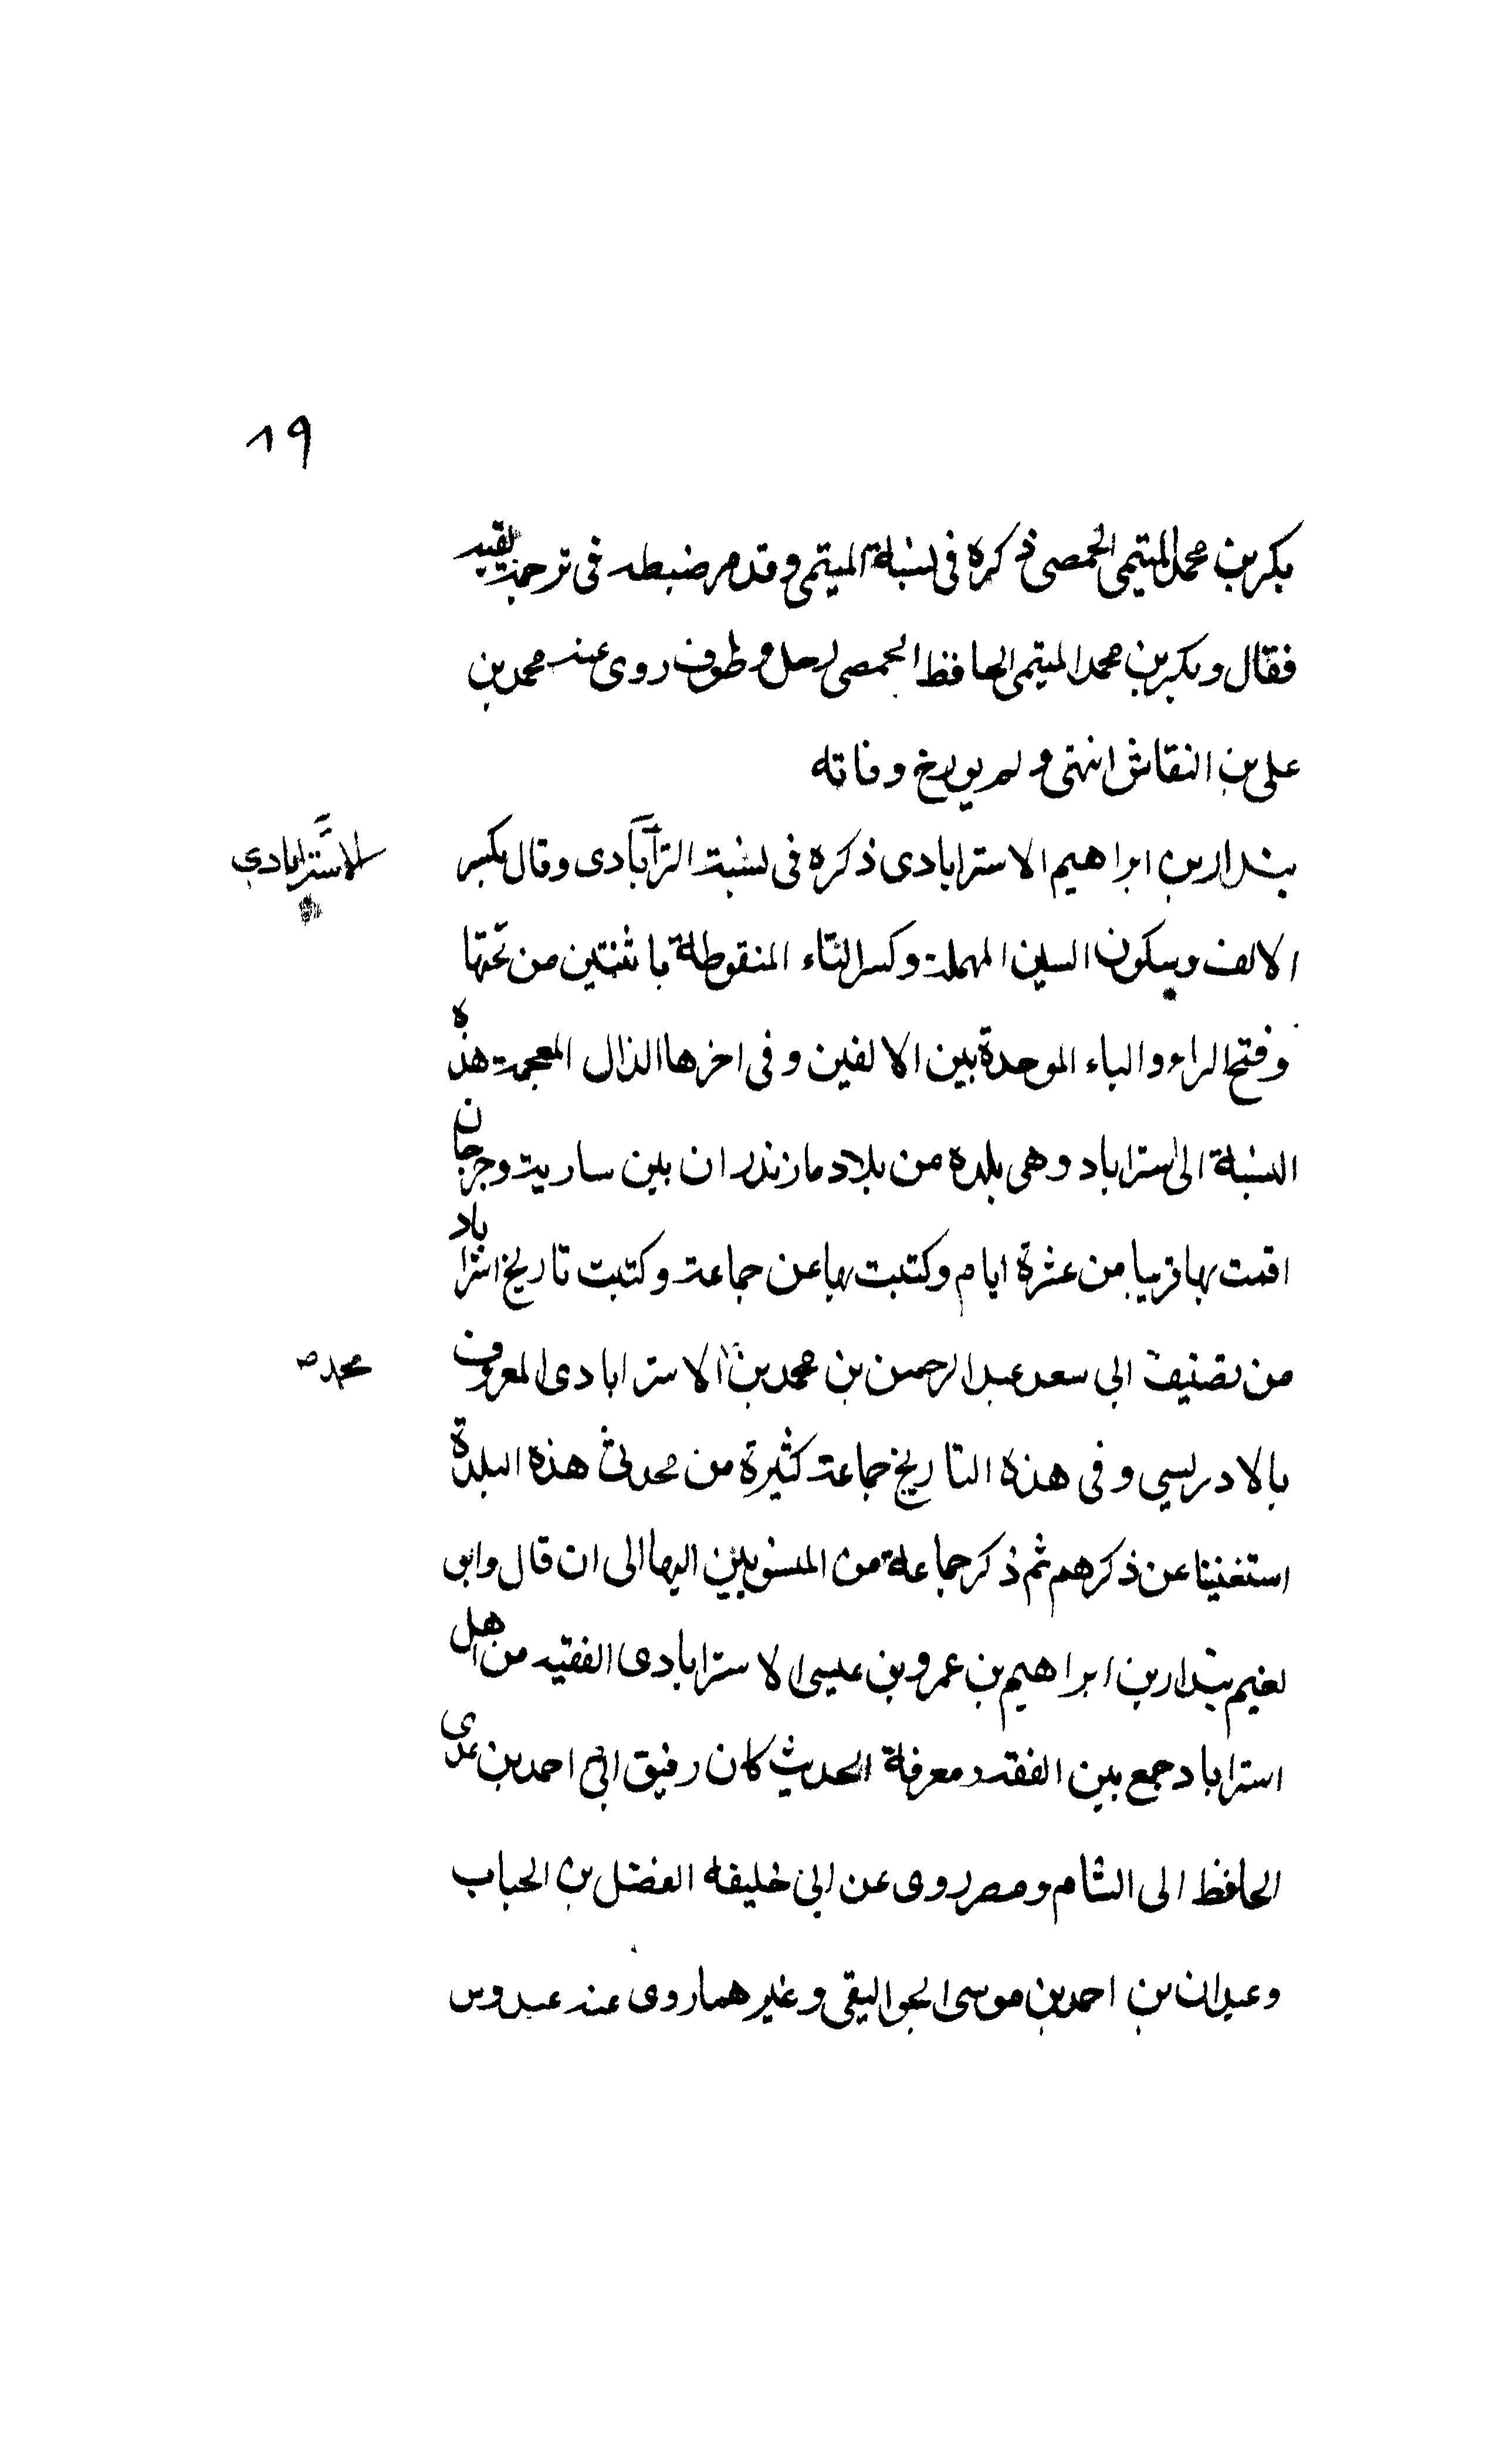 ٨٩
بكر بن محمد الميتمى الحمصى ذكره فى نسبة الميتمى وقد مر ضبطه فى ترجمة
فقال وبكر بن محمد الميتمى الحافظ الحمصى رحل وطوف روى عنه محمد بن
على بن النقاش انتهى ولم يورخ وفاته
بندار بن ابراهيم الاسترابادى ذكره فى نسبة استراباذى وقال بكسر
الاسترابادى
الالف وسكون السين المهملة وكسر التاء المنقوطة باثنتين من تحتها
وفتح الراء والباء الموحدة بين الالفين وفى اخرها الذال المعجمة هذه
النسبة الى استراباد وهى بلدة من بلاد مازندران بين سارية وجرجان
اقمت بها قريبا من عشرة ايام وكتبت بها عن جماعة وكتبت تاريخ استراباد
من تصنيف ابى سعد عبد الرحمن بن محمد بن الاسترابادى المعروف
محمد صـ
بالادريسي وفى هذه التاريخ جماعة كثيرة من محدثى هذه البلدة
استغنينا عن ذكرهم ثم ذكر جماعة من المنسوبين اليها الى ان قال وابو
نعيم بندار بن ابراهيم بن عمرو بن عيسى الاسترابادى الفقيه من اهل
استراباد جمع بين الفقه ومعرفة الحديث كان رفيق ابى احمد بن عدى
الحافظ الى الشام ومصر روى عن ابى خليفة الفضل بن الحباب
وعبدان بن احمد بن موسى الجواليقى وغيرهما روى عنه عبدوس